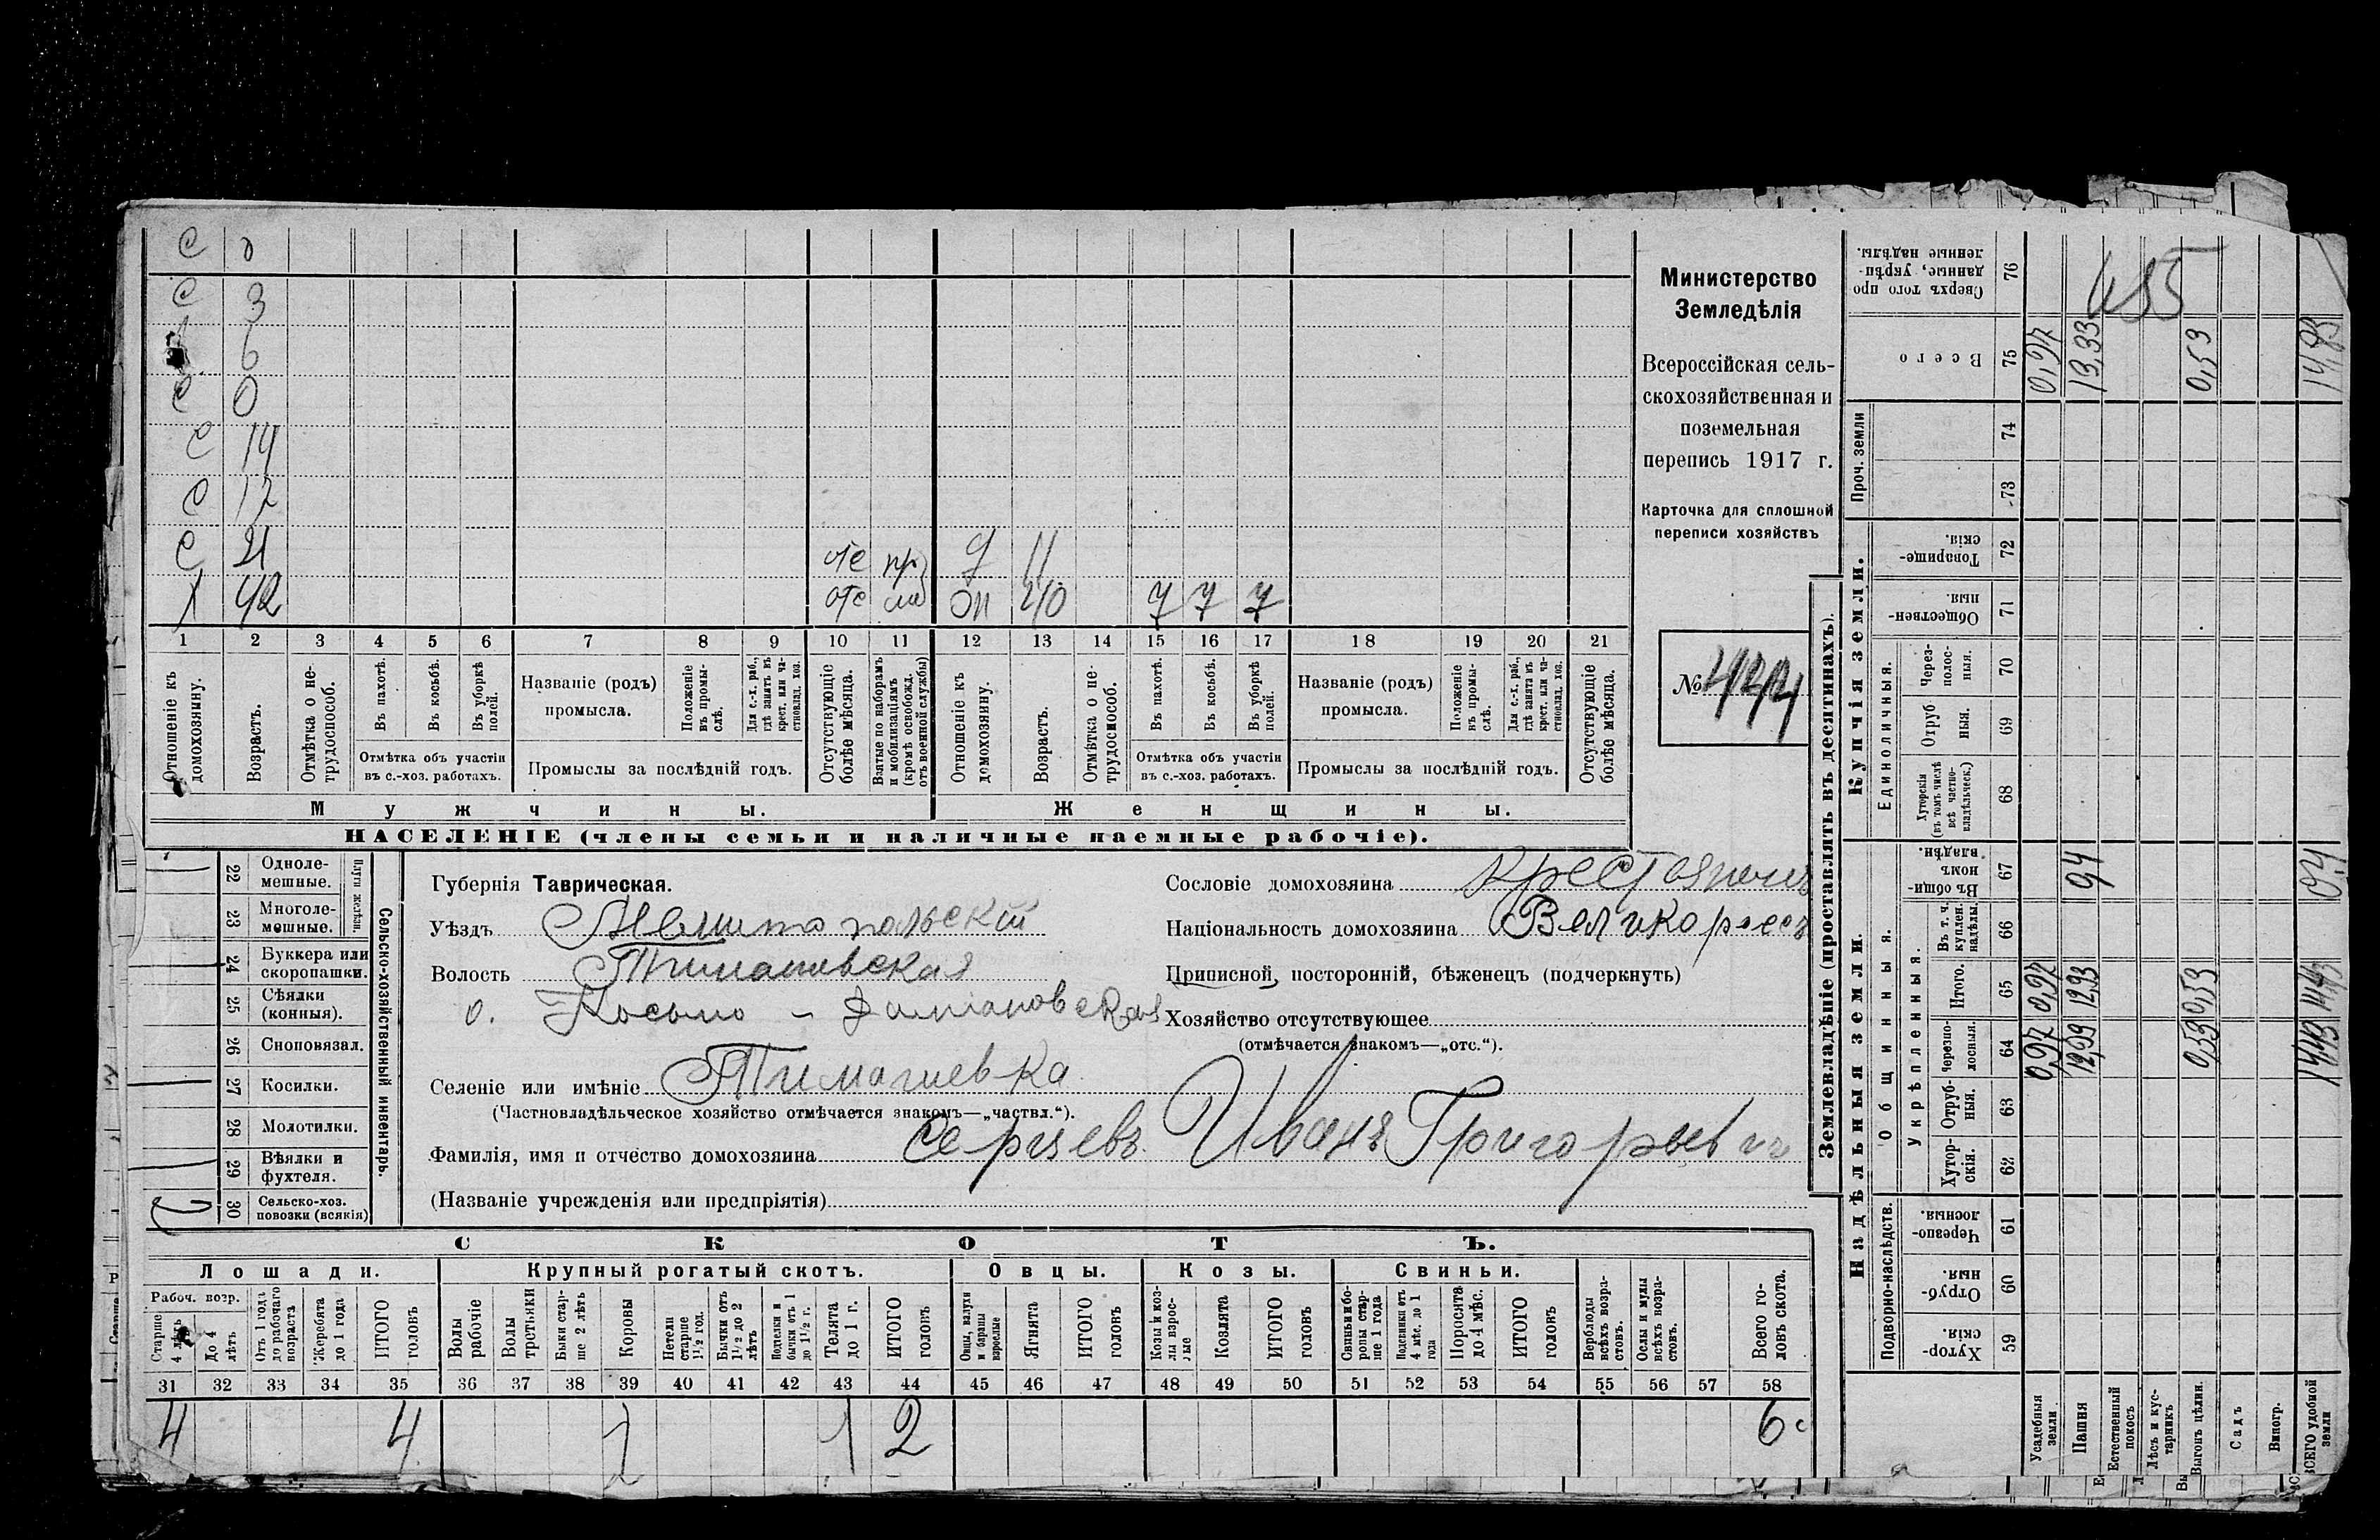 С
С 3
6
С 0
С 14
С 12
С 21 отс пр д 11
Х 42 отс мо эп 40 7 7 7
1 2 3 4 5 6 7 8 9 10 11 12 13 14 15 16 17 18 19 20 21
Отношеніе къ домохозяину.
Возрастъ.
Отмѣтка о не-трудоспособ.
Въ пахотѣ.
Въ косьбѣ.
Въ уборкѣ полей.
Отмѣтка объ участіи
въ с.-хоз. работахъ.
Названіе (родъ)
промысла.
Положеніе въ промы-слѣ.
Для с.-х. раб., гдѣ занятъ въ крест. или ча-стновлад. хоз.
Промыслы за послѣдній годъ.
Отсутствующіе болѣе мѣсяца.
Взятые по наборамъ и мобилизаціямъ (кромѣ освобожд. отъ военной службы)
Отношеніе къ домохозяину.
Возрастъ.
Отмѣтка о не-трудоспособ.
Въ пахотѣ.
Въ косьбѣ.
Въ уборкѣ полей.
Отмѣтка объ участіи
въ с.-хоз. работахъ.
Названіе (родъ)
промысла.
Положеніе въ промы-слѣ.
Для с.-х. раб., гдѣ занята въ крест. или ча-стновлад. хоз.
Промыслы за послѣдній годъ.
Отсутствующіе болѣе мѣсяца.
Мужчины.
Женщины.
НАСЕЛЕНІЕ (члены семьи и наличные наемные рабочіе).
Министерство
Земледѣлія
Всероссійская сель-
скохозяйственная и
поземельная
перепись 1917 г.
Карточка для сплошной
переписи хозяйствъ
№
22 Одноле-
мешные.
23 Многоле-
мешные.
Плуги желѣзн.
24 Буккера или
скоропашки.
25 Сѣялки
(конныя).
26 Сноповязал.
27 Косилки.
28 Молотилки.
29 Вѣялки и
фухтеля.
30 Сельско-хоз.
повозки (всякія)
2
Сельско-хозяйственный инвентарь.
Губернія Таврическая.
Уѣздъ Мелитопольскій
Волость Тимашовская
о. Косьмо-Даміановская
Селеніе или имѣніе Тимашевка
(Частновладѣльческое хозяйство отмѣчается знакомъ—„частвл.“).
Фамилія, имя и отчество домохозяина Сергѣевъ Иванъ Григорьевич
(Названіе учрежденія или предпріятія)
Сословіе домохозяина Крестьянинъ
Національность домохозяина Великороссъ
Приписной, посторонній, бѣженецъ (подчеркнуть)
Хозяйство отсутствующее
(отмѣчается знакомъ—„отс.“).
СКОТЪ.
Лошади. Крупный рогатый скотъ. Овцы. Козы. Свиньи.
Рабоч. возр.
Старше 4 лѣтъ
До 4 лѣтъ
Отъ 1 года до рабочаго возраста
Жеребята до 1 года
ИТОГО головъ
Волы рабочіе
Волы третьяки
Быки стар-ше 2 лѣтъ
Коровы
Нетели старше 1½ год.
Бычки отъ 1½ до 2 лѣтъ
Подтелки и бычки отъ 1 до 1½ г.
Телята до 1 г.
ИТОГО головъ
Овцы, валухи и бараны взрослые
Ягнята
ИТОГО головъ
Козы и коз-лы взрос-лые
Козлята
ИТОГО головъ
Свиньи и бо-ровы стар-ше 1 года
Подсвинки отъ 4 мѣс. до 1 года
Поросята до 4 мѣс.
ИТОГО головъ
Верблюды всѣхъ возра-стовъ.
Ослы и мулы всѣхъ возра-стовъ.
Всего го-ловъ скота.
31 32 33 34 35 36 37 38 39 40 41 42 43 44 45 46 47 48 49 50 51 52 53 54 55 56 57 58
4 4 1 1 2 6
Землевладѣніе (проставлять въ десятинахъ).
Надѣльныя земли.
Купчія земли.
Проч. земли
Подворно-наслѣдств.
Общинныя.
Укрѣпленныя.
Единоличныя.
Сверхъ того про-данные, укрѣп-ленные надѣлы. 76
485
Всего 75 0,97 13,33 0,53 14,83
74
73
Товарище-скія. 72
Обществен-ныя. 71
Через-полос-ныя. 70
Отруб-ныя. 69
Хуторскія (въ томъ числѣ всѣ частно-владѣльческ.) 68
Въ общин-номъ владѣн. 67 0,4 0,4
Въ т. ч. куплен. надѣлы. 66
Итого. 65 0,97 12,93 0,53 14,43
Черезпо-лосныя. 64 0,97 12,93 0,53 14,43
Отруб-ныя. 63
Хутор-скія. 62
Черезпо-лосныя. 61
Отруб-ныя. 60
Хутор-скія. 59
Усадебныя земли
Пашня
Естественный покосъ
Лѣсъ и кус-тарникъ
Выгонъ цѣлин.
Садъ
Виногр.
ВСЕГО удобной земли